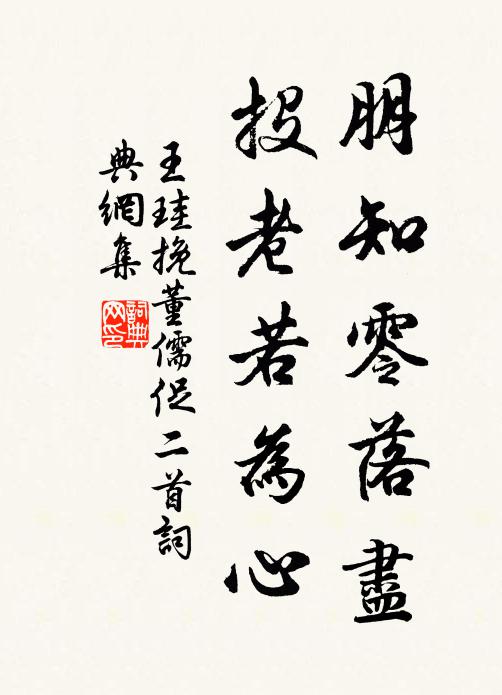 朋知零落盡
投老若為心
王珪挽董儒促二首詞
典網集
詞典
网印